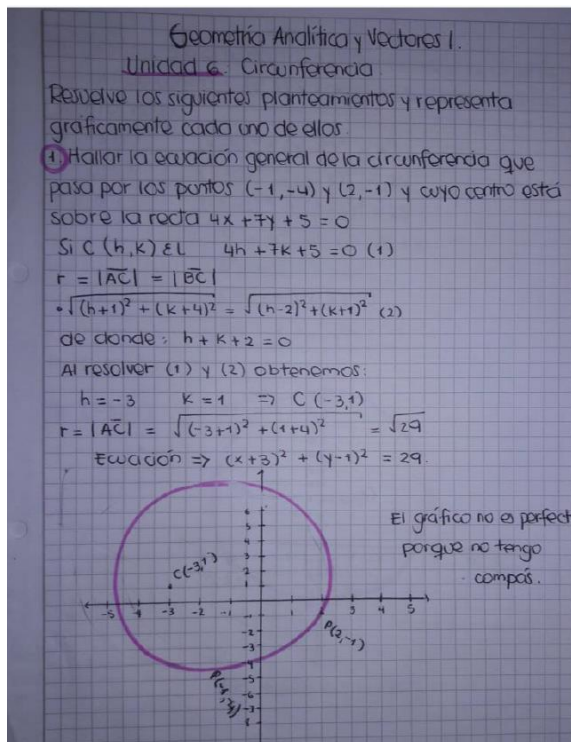 Geometría Analítica y Vectores I.
Unidad 6. Circunferencia
Resuelve los siguientes planteamientos y representa
gráficamente cada uno de ellos
1. Hallar la ecuación general de la circunferencia que
pasa por los puntos (-1,-4) y (2,-1) y cuyo centro está
sobre la recta 4x + 7y + 5 = 0
Si C (h,k) ε L 4h + 7k + 5 = 0 (1)
r = |AC| = |BC|
• √(h+1)² + (k+4)² = √(h-2)² + (k+1)² (2)
de donde: h + k + 2 = 0
Al resolver (1) y (2) obtenemos:
h = -3 k = 1 => C (-3,1)
r = |AC| = √(-3+1)² + (1+4)² = √29
Ecuación => (x+3)² + (y-1)² = 29.
El gráfico no es perfect
porque no tengo
compás.
6
5
4
3
2
1
C(-3,1)
-5 -4 -3 -2 -1 1 2 3 4 5
P(2,-1)
-2
-3
-4
-5
-6
-7
8